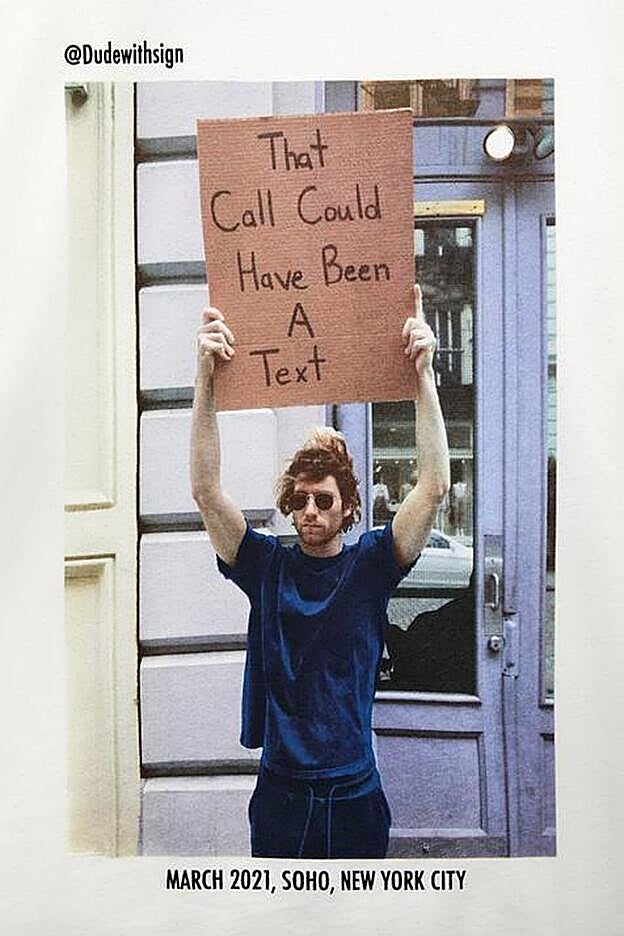 @Dudewithsign
That
Call Could
Have Been
A
Text
MARCH 2021, SOHO, NEW YORK CITY